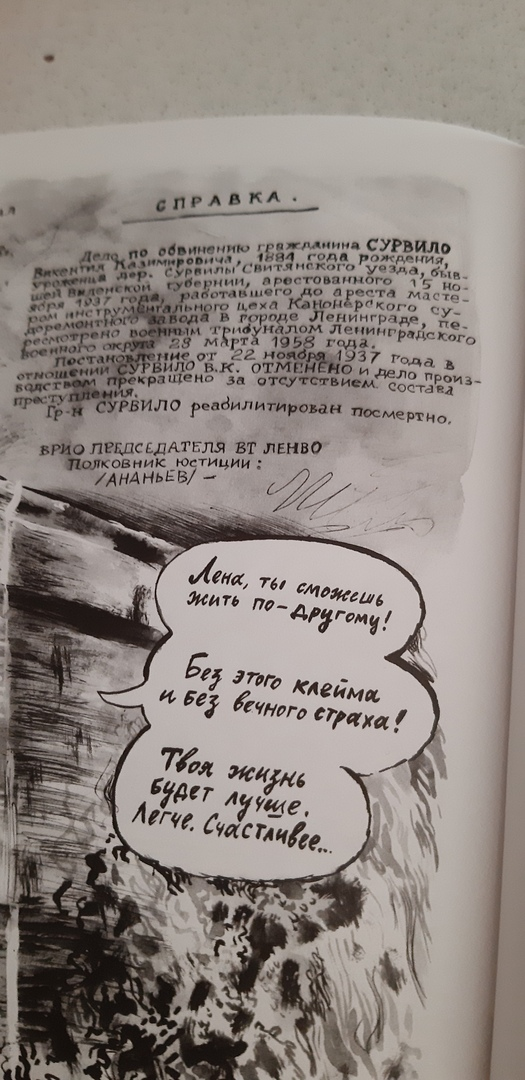 СПРАВКА.
Дело по обвинению гражданина СУРВИЛО
Викентия Казимировича, 1884 года рождения,
уроженца дер. Сурвилы Свитянского уезда, быв-
шей Виленской губернии, арестованного 15 но-
ября 1937 года, работавшего до ареста масте-
ром инструментального цеха Канонерского су-
доремонтного завода в городе Ленинграде, пе-
ресмотрено военным трибуналом Ленинградского
военного округа 28 марта 1958 года.
Постановление от 22 ноября 1937 года в
отношении СУРВИЛО В.К. ОТМЕНЕНО и дело произ-
водством прекращено за отсутствием состава
преступления.
Гр-н СУРВИЛО реабилитирован посмертно.
ВРИО ПРЕДСЕДАТЕЛЯ ВТ ЛЕНВО
Полковник юстиции:
/АНАНЬЕВ/ –
Лена, ты сможешь
жить по-другому!
Без этого клейма
и без вечного страха!
Твоя жизнь
будет лучше.
Легче. Счастливее...